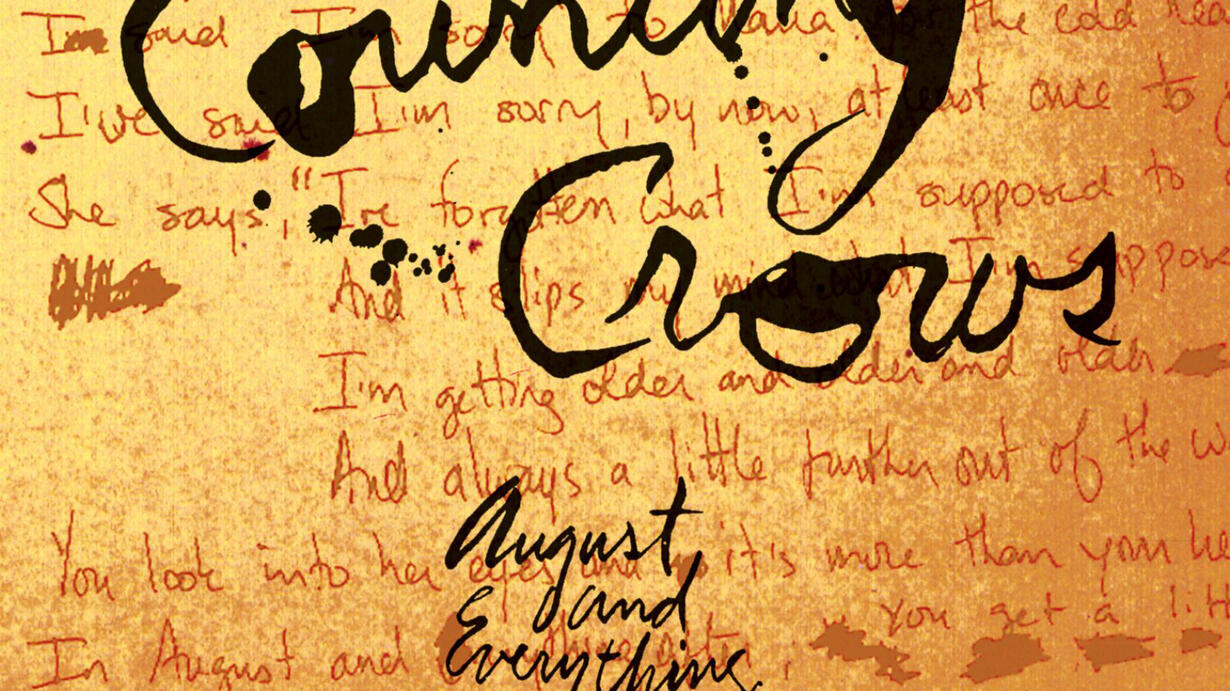 Counting
Crows
I'm said I'm sorry to Maria the cold
I've said I'm sorry, by now, at least once to
She says, "I've forgotten what I'm supposed to
And it slips my mind what I'm suppos
I'm getting older and older and older
And always a little further out of the w
You look into her eyes and it's more than your he
you get a litt
In August and
August
and
Everything